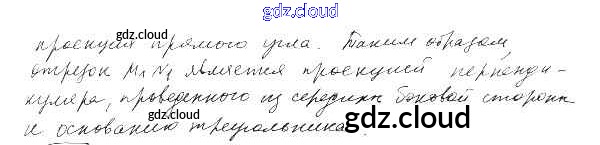 gdz.cloud
проекция прямого угла. Таким образом,
gdz.cloud
отрезок M₁N₁ является проекцией перпенди-
куляра, проведенного из середины боковой стороны
gdz.cloud
gdz.cloud
к основанию треугольника.
gdz.cloud
gdz.cloud